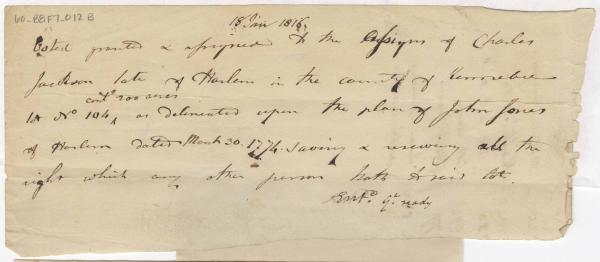 60-BBF7.012B
18 1816
Voted granted & assigned to the Assigns of Charles
Jackson late of Harlem in the county of Kennebec
cont.g 200 acres
lot No 104, as delineated upon the plan of John Jones
of Harlem dated March 30. 1774. saving & reserving all the
right which any other person hath to said lot.
Ent.d